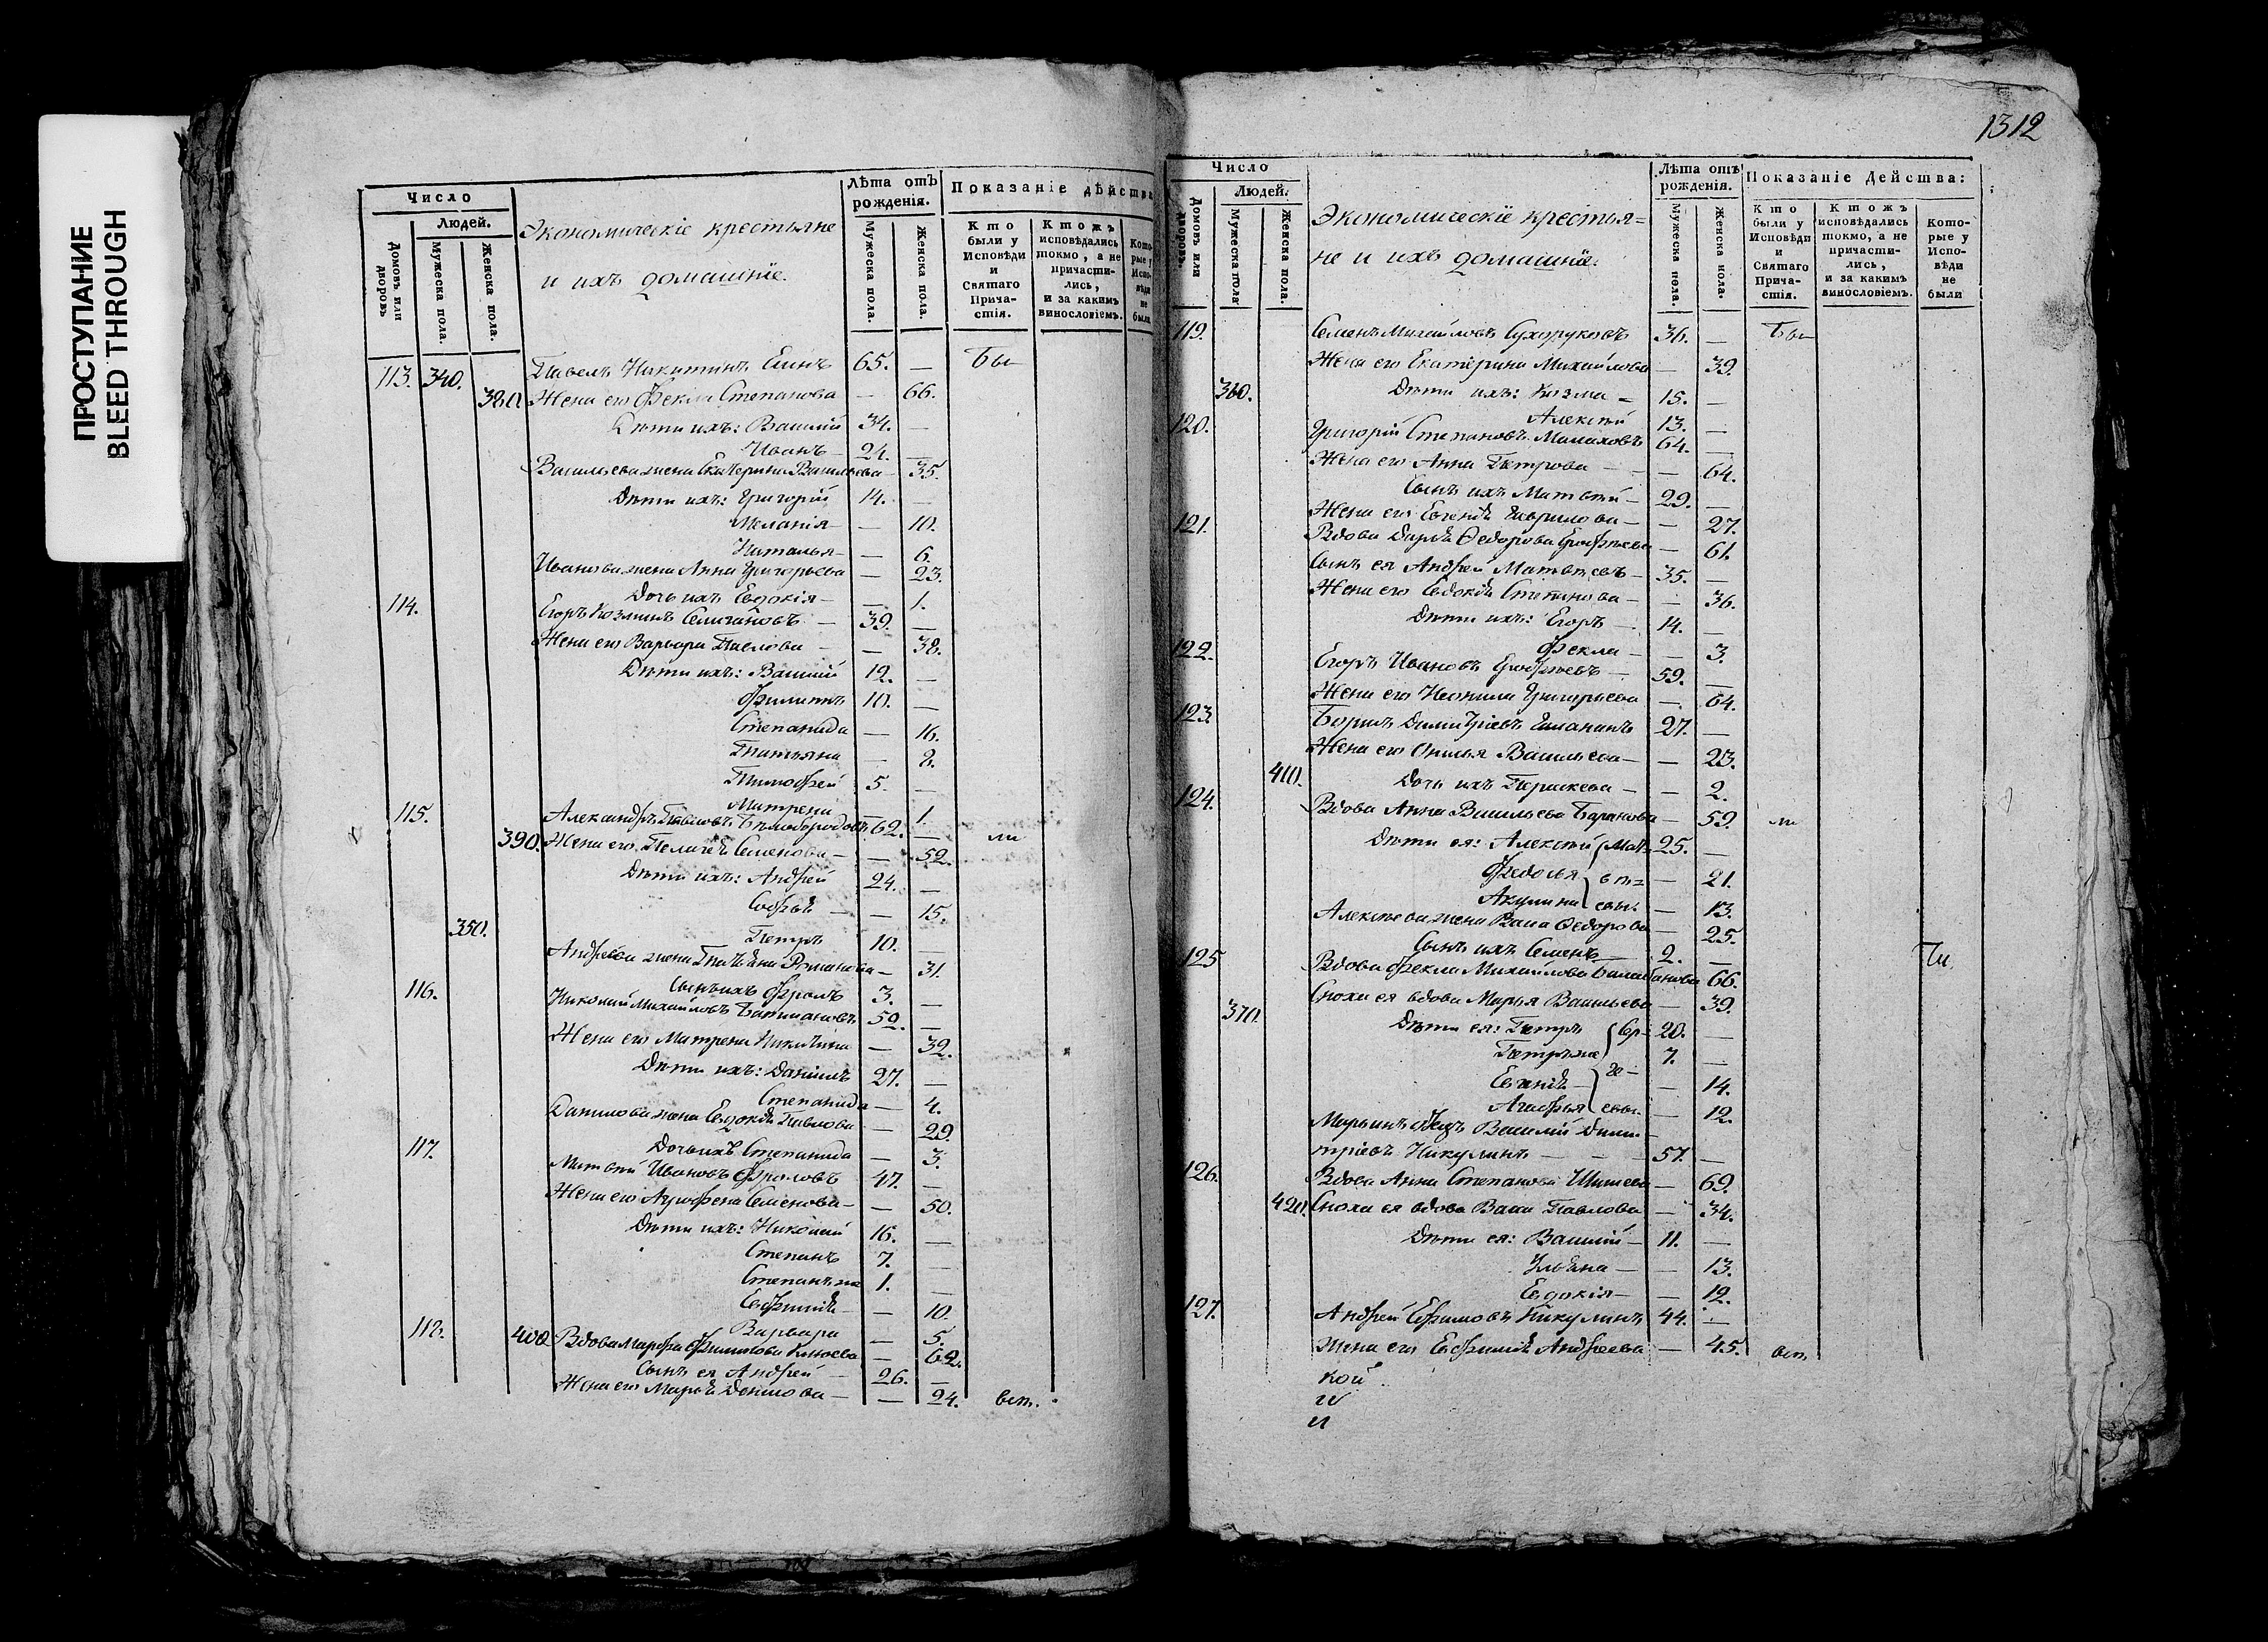 ПРОСТУПАНИЕ
BLEED THROUGH
Число
Людей.
Домовъ или дворовъ
Мужеска пола.
Женска пола.
Экономическіе крестьяне
и ихъ домашніе.
Лѣта отъ рожденія.
Мужеска пола.
Женска пола.
Показаніе дѣйства
Кто были у Исповѣди и Святаго Прича-стія.
Ктожъ исповѣдались токмо, а не причасти-лись, и за какимъ винословіемъ.
Кото-рые у Испо-вѣди не были
113. 340. Павелъ Никитинъ Елинъ 65. — Бы
380. Жена его Фекла Степанова — 66.
Дѣти ихъ: Василій 34. —
Иванъ — 24. —
Васильева жена Екатерина Васильева — 35.
Дѣти ихъ: Григорій 14. —
Меланія — — 10.
Наталья — — 6.
Иванова жена Анна Григорьева — 23.
Дочь ихъ Евдокія — — 1.
114. Егоръ Козминъ Селиґановъ — 39. —
Жена его Варвара Павлова — — 38.
Дѣти ихъ: Василій 12. —
Филиппъ 10. —
Степанида — 16.
Татьяна — 8.
Тимофей 5. —
Матрена — 1.
115. Александръ Павловъ Бѣлобородовъ 62. — ли
390. Жена его Пелагея Семенова — — 52.
Дѣти ихъ: Андрей 24. —
Софья — — 15.
350. Петръ 10. —
Андреева жена Татьяна Романова — 31.
Сынъ ихъ Фролъ 3. —
116. Николай Михайловъ Батмановъ 52. —
Жена его Матрена Никитина — 32.
Дѣти ихъ: Даніилъ 27. —
Степанида — 4.
Данилова жена Евдокія Павлова — 29.
Дочь ихъ Степанида — 3.
117. Матвѣй Ивановъ Фроловъ 47. —
Жена его Агрофена Семенова — — 50.
Дѣти ихъ: Николай 16. —
Степанъ 7. —
Степанъ же 1. —
Евфимія — — 10.
Варвара — 5.
118. 400. Вдова Марфа Филипова Киноева — 62.
Сынъ ея Андрей — 26. —
Жена его Марья Данилова — — 24. вст.
1312
Число
Людей.
Домовъ или дворовъ.
Мужеска пола
Женска пола.
Экономическіе крестья=
не и ихъ домашніе.
Лѣта отъ рожденія.
Мужеска пола.
Женска пола.
Показаніе Действа:
Кто были у Исповѣди и Святаго Прича-стія.
Ктожъ исповѣдались токмо, а не причасти-лись, и за какимъ винословіемъ.
Кото-рые у Испо-вѣди не были
119. Семенъ Михайловъ Сухоруковъ 36. — Бы
Жена его Екатерина Михайлова — 39.
360. Дѣти ихъ: Козма — 15. —
Алексѣй 13. —
120. Григорій Степановъ Малаховъ 64. —
Жена его Анна Петрова — — 64.
Сынъ ихъ Матвѣй — 29. —
Жена его Евгенія Гаврилова — — 27.
121. Вдова Дарья Ѳедорова Ерофѣева — 61.
Сынъ ея Андрей Матвѣевъ — 35. —
Жена его Евдокія Степанова — — 36.
Дѣти ихъ: Егоръ — 14. —
Фекла — — 3.
122. Егоръ Ивановъ Ерофѣевъ — 59. —
Жена его Неонила Григорьева — 64.
123. Борисъ Димитріевъ 27. —
Жена его Васильева — — 23.
410. Дочь ихъ Параскева — — 2.
124. Вдова Анна Васильева Баранова — 59. ли
Дѣти ея: Алексѣй Мат- 25. —
Федосья вѣ= — 21.
Акулина евы. — 13.
Алексѣева жена Васа Ѳедорова — 25.
Сынъ ихъ Семенъ — 2. —
125. Вдова Фекла Михайлова Балабанова 66. Ти
Сноха ея вдова Марья Васильева — 39.
370. Дѣти ея: Петръ Ер- 20. —
Петръ же 7. —
Евгенія — — 14.
Агафья евы. — 12.
Марьинъ отецъ Василій Дими-
тріевъ Никулинъ — — 57. —
126. Вдова Анна Степанова Шишева — 69.
420. Сноха ея вдова Васа Павлова — 34.
Дѣти ея: Василій — 11. —
Ульяна — — 13.
Евдокія — — 12.
127. Андрей Ефимовъ Никулинъ 44. —
Жена его Евфимія Андреева — 45. вст.
кой
и
и